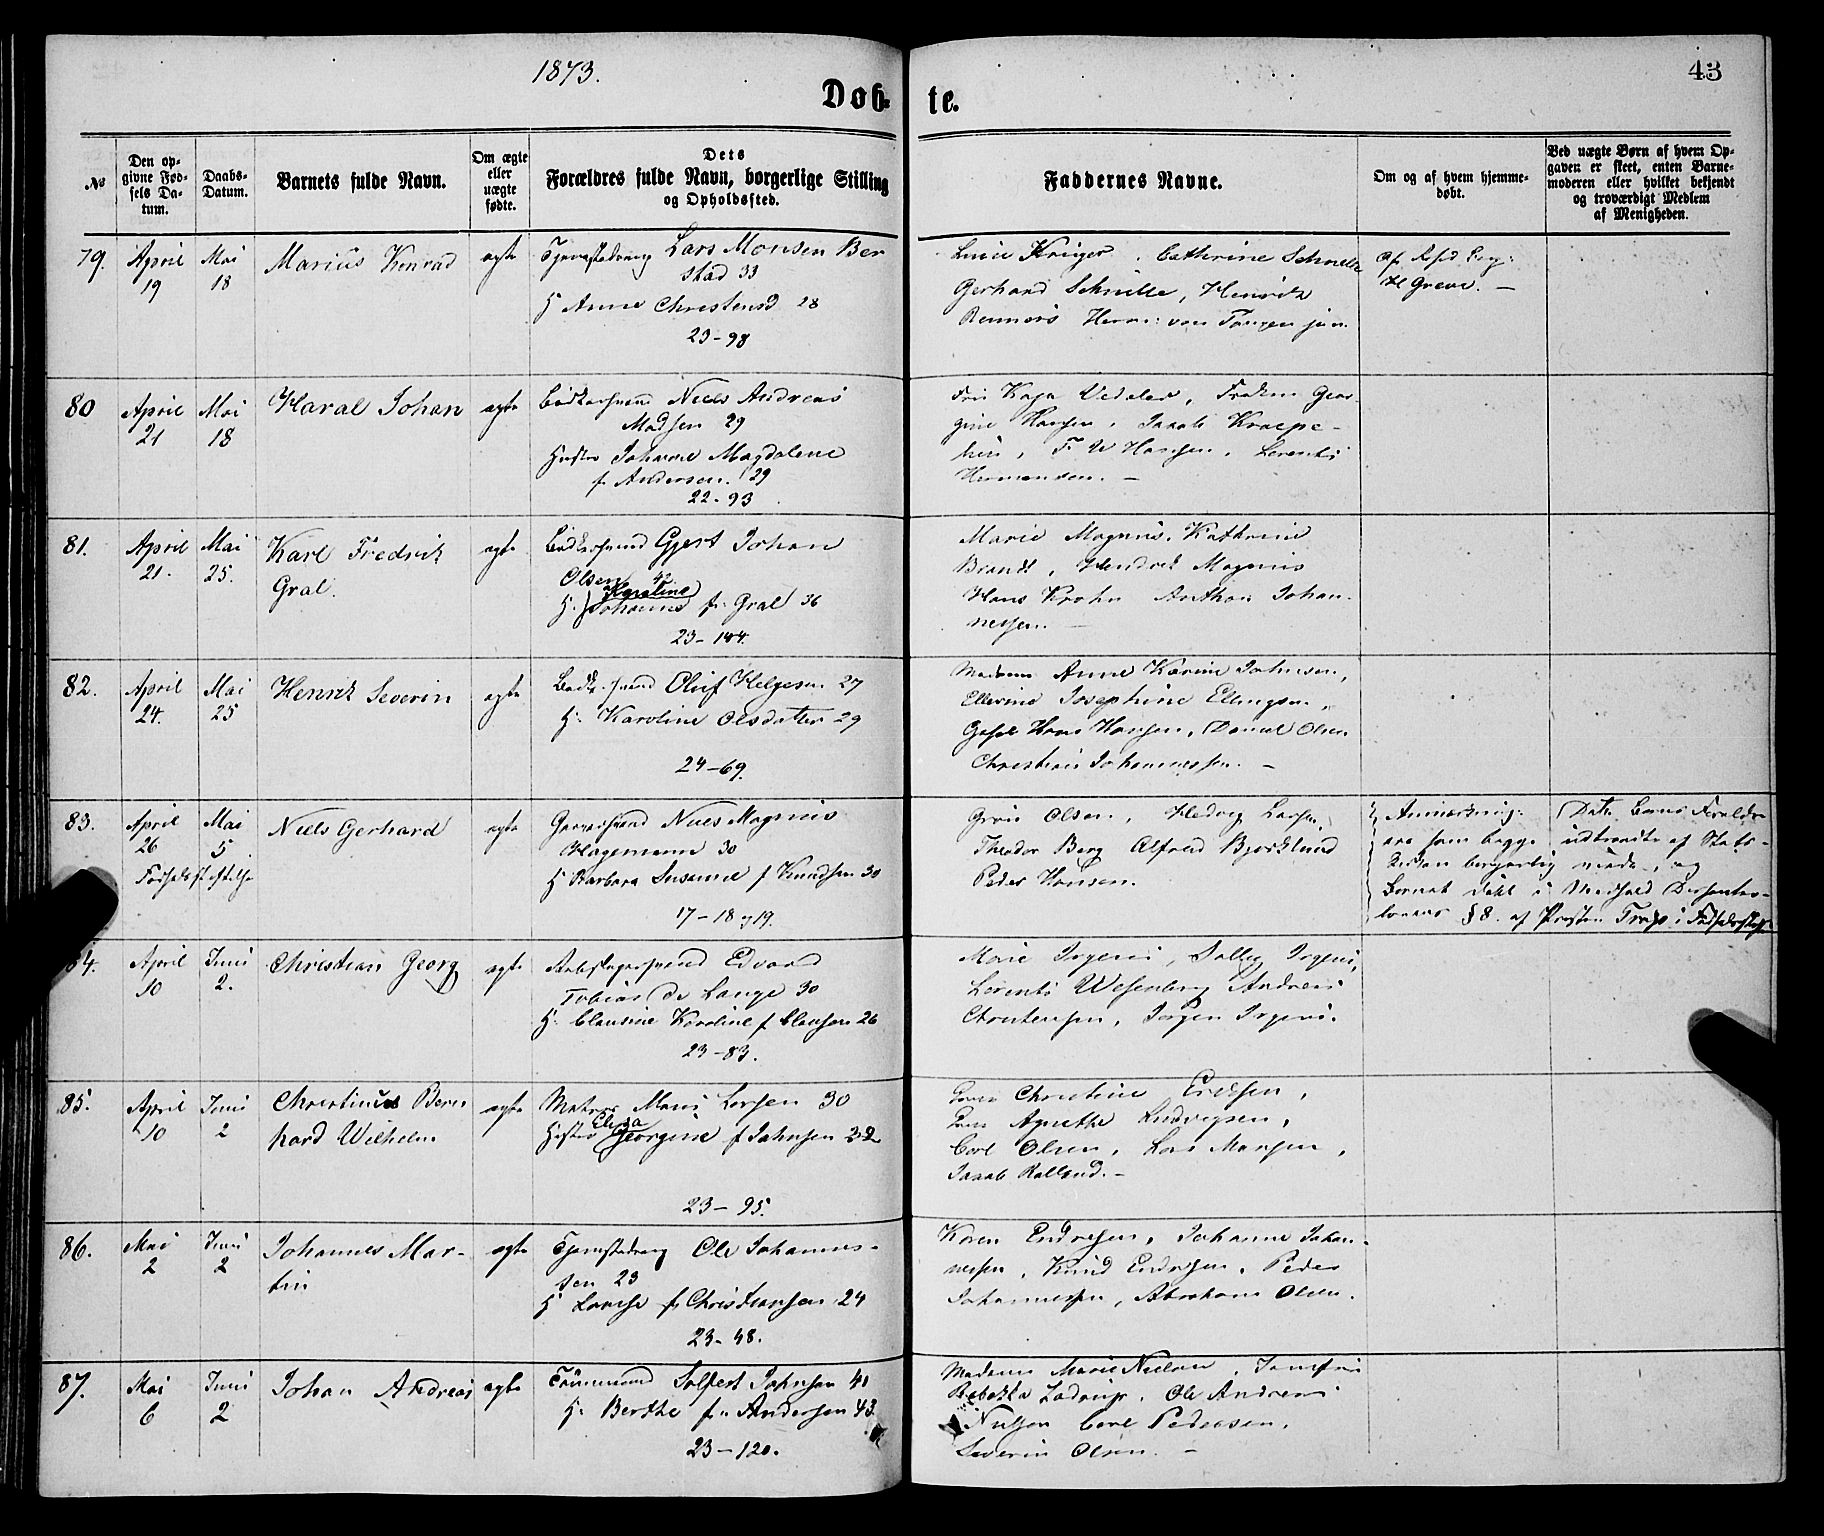 1873.
43
Døb- te.
No
Den op-
givne Fød-
sels Da-
tum.
Daabs-
Datum.
Barnets fulde Navn.
Om ægte
eller
uægte
fødte.
Dets
Forældres fulde Navn, borgerlige Stilling
og Opholdssted.
Faddernes Navne.
Om og af hvem hjemme-
døbt.
Ved uægte Børn af hvem Op-
gaven er skeet, enten Barne-
moderen eller hvilket bekjendt
og troværdigt Medlem
af Menigheden.
79.
April
19
Mai
18
Marius Konrad
ægte
Lars Monsen Ber
stad 33
H Anne Christensd 28
23-98
Krüger, Cathrine Schnelle
Gerhard Schnelle, Henrik
Reimers Herm: von Tangen jun.
H Greve. —
80
April
21
Mai
18
Haral Johan
ægte
Bødkersvend Niels Andreas
Madsen 29
Hustro Johanne Magdalene
f. Andersen. 29
22-93
Kaja Vedeler, Frøken Geor-
gine Hansen, Jacob Kroepe-
lin, F W Hansen, Lorents
Hermansen. —
81.
April
21.
Mai
25.
Karl Fredrik
Gral.
ægte
Bødkersvend Gjert Johan
Olsen 42.
Karoline
H. Johanne f. Gral 36
23-144.
Marie Magnus, Kathrine
Brandt, Hendrik Magnus
Hans Krohn Anthon Johan-
nessen. —
82.
April
24.
Mai
25
Henrik Severin
ægte
Bødk. svend Oluf Helgesen 27
H. Karoline Olsdatter 29
24-69.
Madame Anne Karine Johnsen,
Ellevine Josephine Ellingsen,
Hans Hansen, Daniel Olsen
Christian Johannessen. —
83.
April
26
Mai
5
Fødselsstiftelse
Niels Gerhard
ægte
Garversvend Niels Magnus
Hagemann 30
H Barbara Susanne f Knudsen 30
17-18 19.
Olsen, Hedvig Larsen,
Theodor Berg Alfred Bjørklund
Peder Hansen.
Anmærkning: Dette Barns Forældre
ere som begge udtraadte af Stats-
kirken borgerlig viede, og
Barnet døbt i Medhold Dissenter-
lovens §8. af Præsten i Fødselsstift.
84.
April
10
Juni
2.
Christian Georg
ægte
Edvard
Tobias de Lange 30
H. Clausine Karoline f Clausen 26
23-83.
Marie Irgens, Irgens,
Lorents Wesenberg Andreas
Christensen, Jørgen Irgens.
85.
April
10
Juni
2
Christinus Bern
hard Wilhelm
ægte
Matros Mons Larsen 30
Eliza
Hustro Georgine f Johnsen 32
23-95.
Christine Eriksen,
Agnethe Ludvigsen,
Carl Olsen, Lars Monsen,
Jacob Rolland. —
86.
Mai
2
Juni
2
Johannes Mar-
tin
ægte
Ole Johannes-
sen 23
H Lovise f. Christiansen 24
23-48.
Karen Endresen, Johanne Johan-
nessen, Knud Endresen, Peder
Johannessen, Abraham Olsen.
87.
Mai
6
Juni
2
Johan Andreas
ægte
Tømmermand Solfest Johnsen 41
H. Berthe f. Andersen 43.
23-120.
Madame Marie Nielsen, Jomfru
Rebekka, Ole Andreas
Carl Pedersen,
Severin Olsen. —